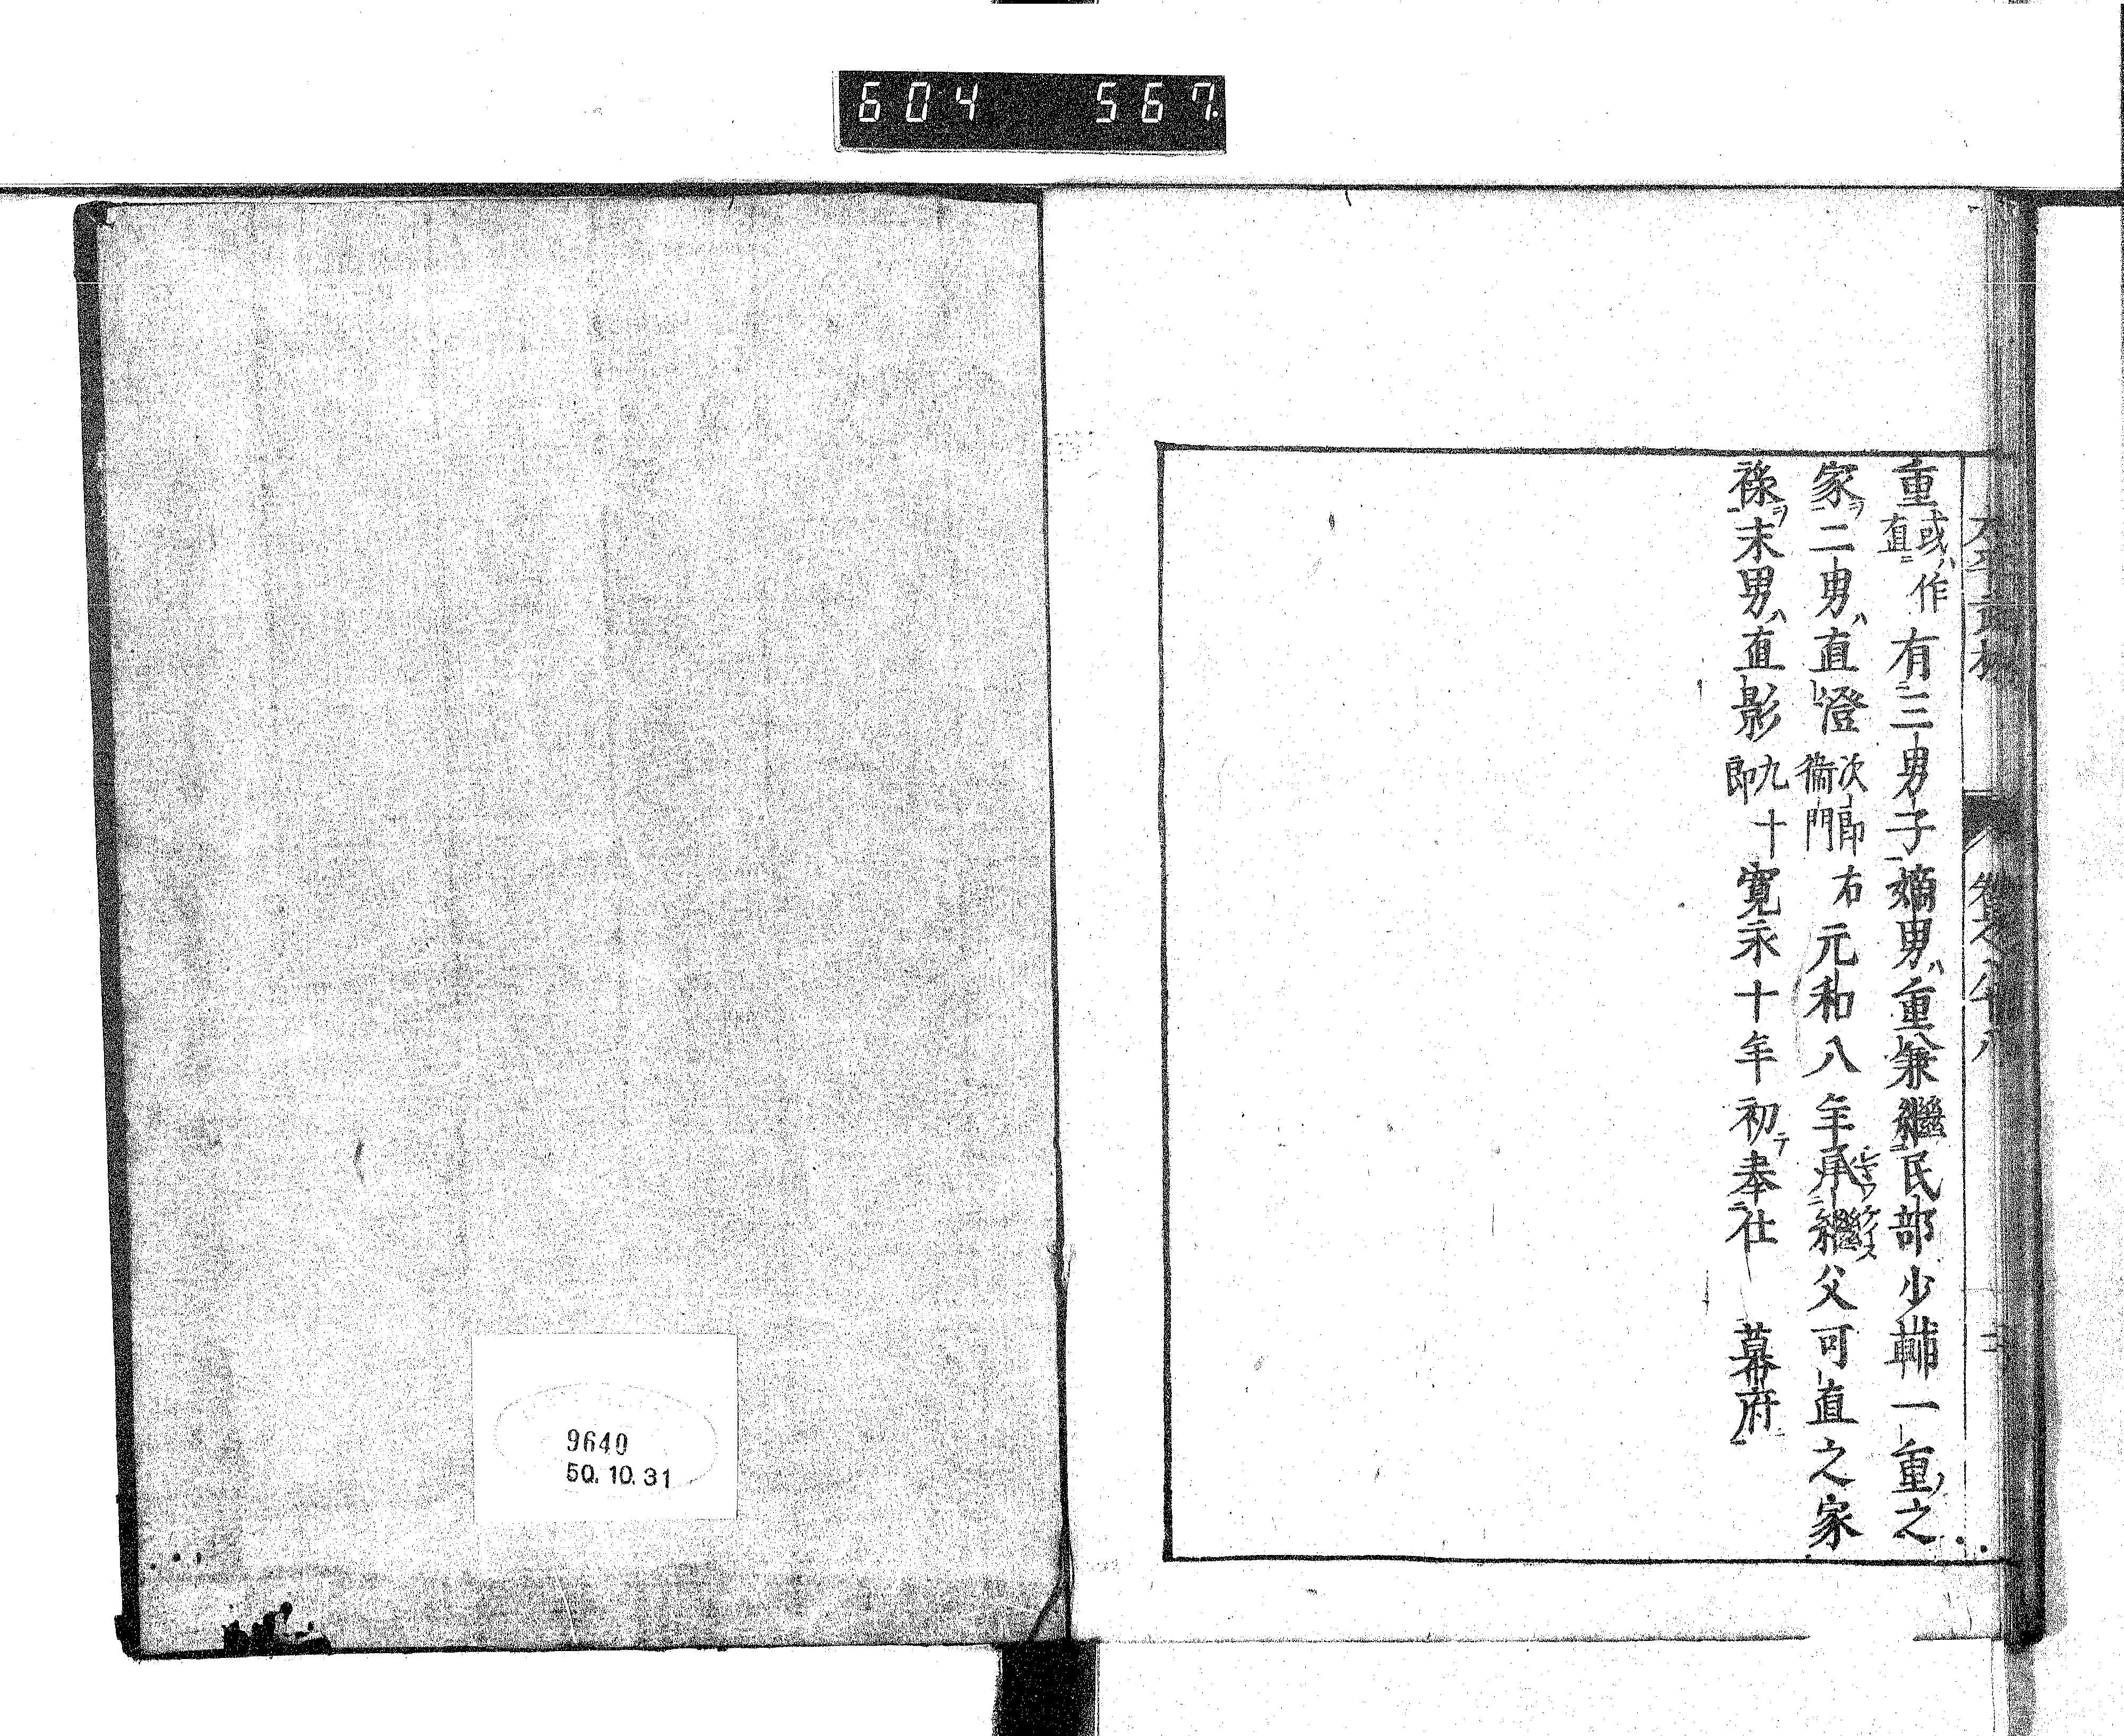 604 567.
重或ハ作直ニ有三男子嫡男ハ重兼継民部少輔一重ノ之
家ヲ二男ハ直澄次郎右衛門元和八年承継父可直之家
禄ヲ末男ハ直影九十郎寛永十年初テ奉仕 幕府
巻之八十八
9640
50.10.31